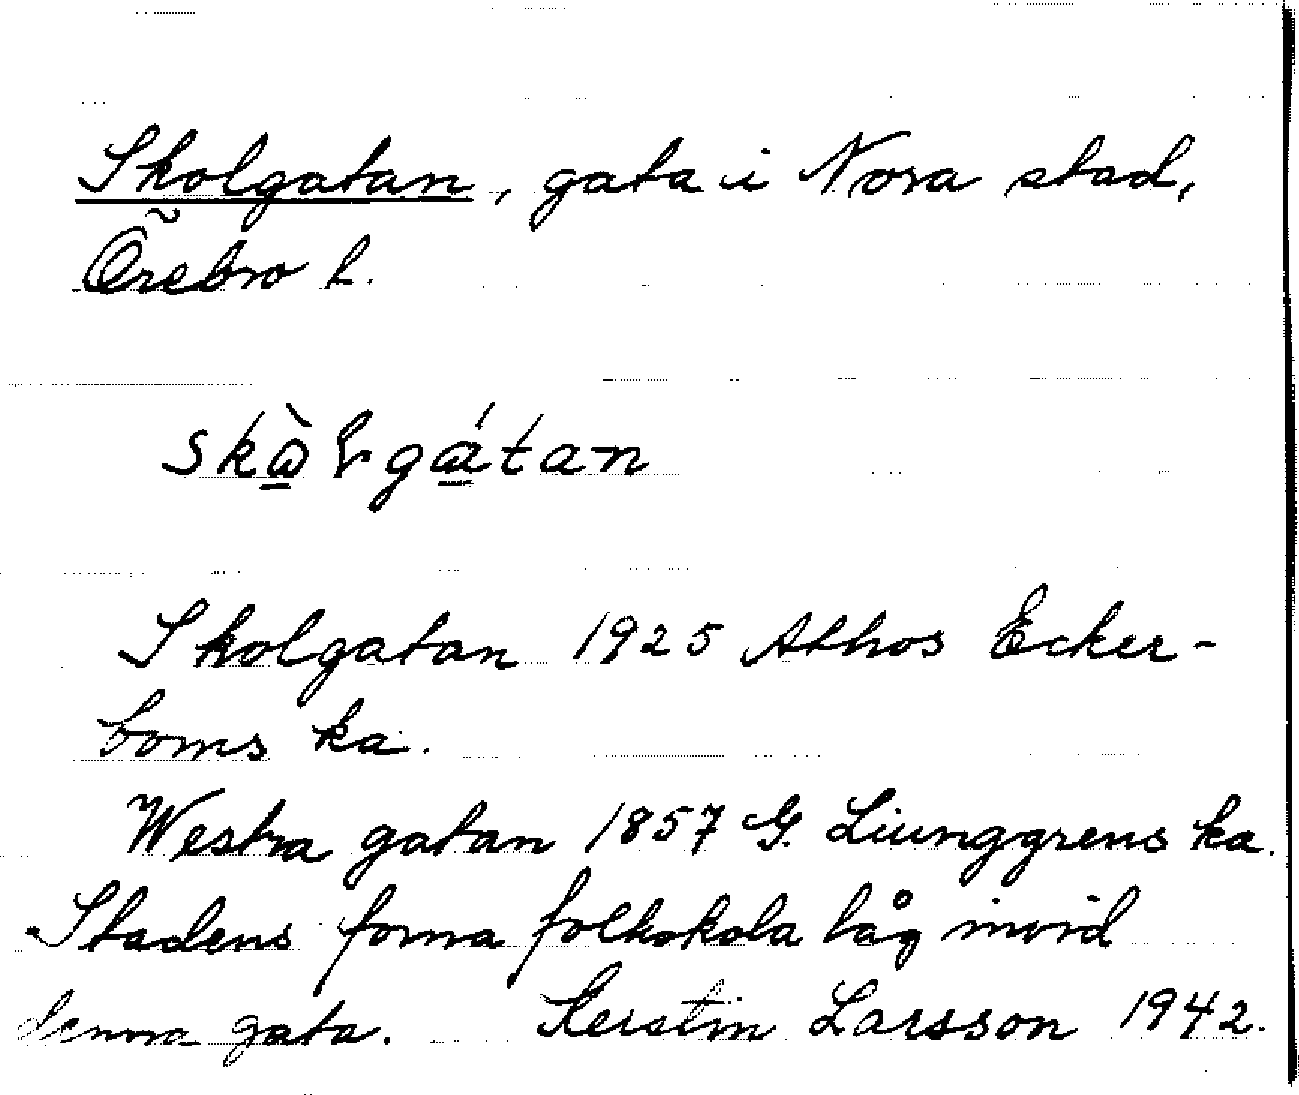 Skolgatan, gata i Nora stad,
Örebro l.
Skolgatan 1925 Athos Ecker-
boms ka.
Westra gatan 1857 G. Liunggrens ka.
Stadens forna folkskola låg invid
denna gata. Kerstin Larsson 1942.